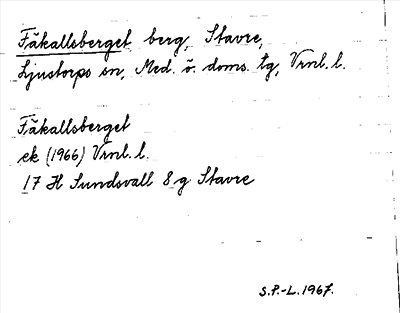 Fäkallsberget berg, Stavre,
Ljustorps sn, Med. ö. doms. tg, Vrnl. l.
Fäkallsberget
ek (1966) Vrnl. l.
17 H Sundsvall 8 g Stavre
S.P.-L. 1967.